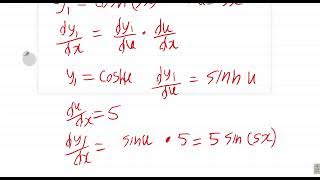 dy₁/dx = dy₁/du · du/dx
y₁ = coshu dy₁/du = sinh u
du/dx = 5
dy₁/dx = sinu • 5 = 5 sin(5x)